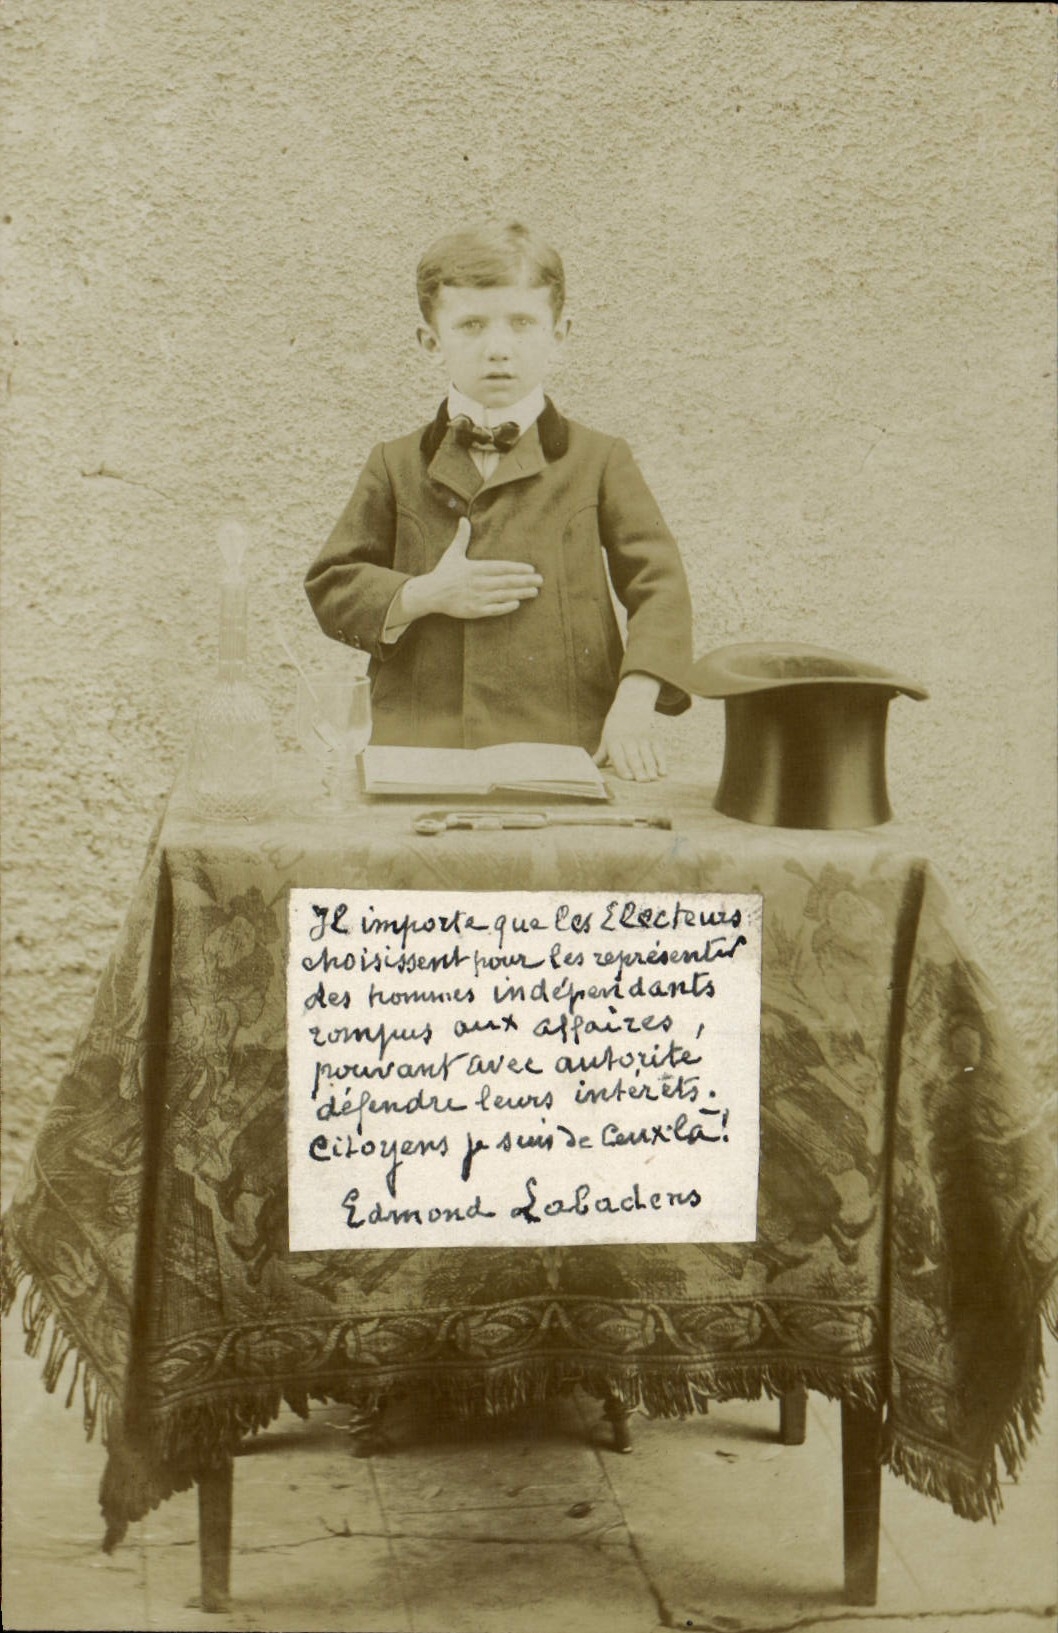 Il importe que les Electeurs
choisissent pour les représenter
des hommes indépendants
rompus aux affaires,
pouvant avec autorité
défendre leurs intérêts.
Citoyens je suis de Ceux là!
Edmond Labadens